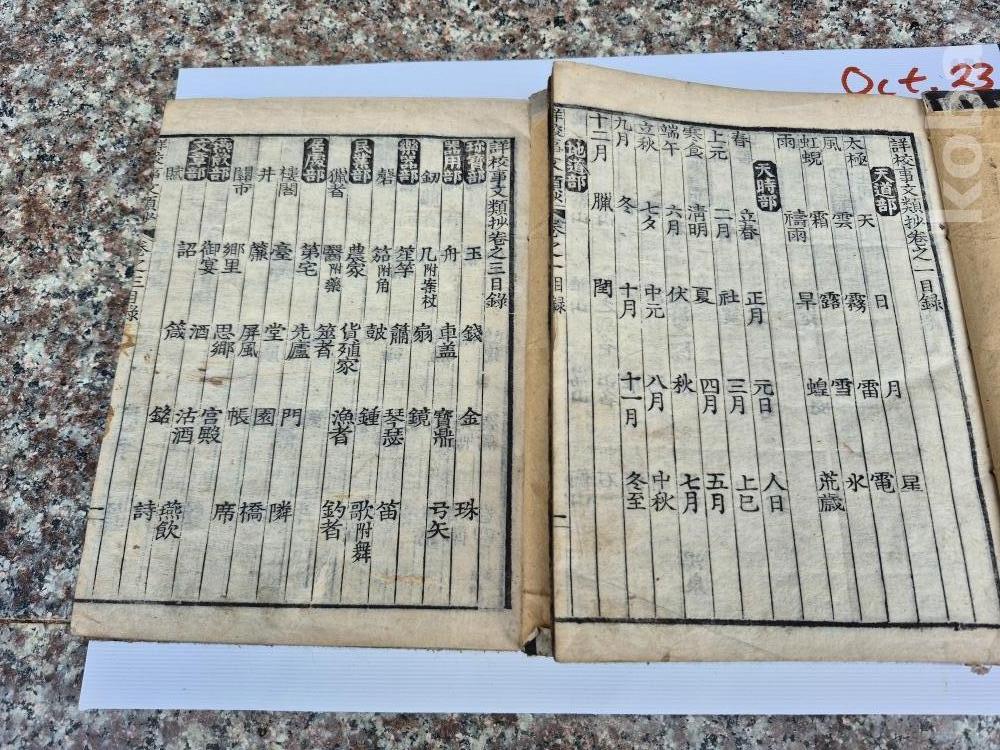 Oct. 23
詳校事文類抄卷之一目錄
天道部
太極 天 日 月 星
風 雲 霧 雷 電
虹蜺 霜 露 雪 氷
雨 禱雨 旱 蝗 荒歲
天時部
春 立春 正月 元日 人日
上元 二月 社 三月 上巳
寒食 清明 夏 四月 五月
端午 六月 伏 秋 七月
立秋 七夕 中元 八月 中秋
九月 冬 十月 十一月 冬至
十二月 臘 閏
地道部
詳校事文類抄 卷之一目錄 一
詳校事文類抄卷之三目錄
珍寶部 玉 錢 金 珠
器用部 舟 車盖 寶鼎 弓矢
劒 几附案杖 扇 鏡
樂器部 笙竽 簫 琴瑟 笛
磬 笳附角 鼓 鍾 歌附舞
民業部 農家 貨殖家 漁者 釣者
獵者 醫附藥 筮者
居處部 第宅 先廬 門 隣
樓閣 臺 堂 園 橋
井 簾 屏風 帳 席
鄉里 思鄉 宮殿
御宴 酒 沽酒 燕飲
文章部 詔 箴 銘 詩
賦
詳校事文類抄 卷之三目錄 一